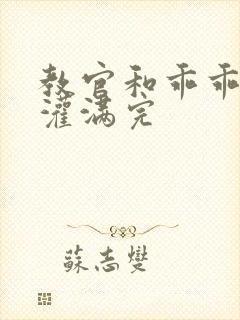 教官和乖乖
灌满完
蘇志燮